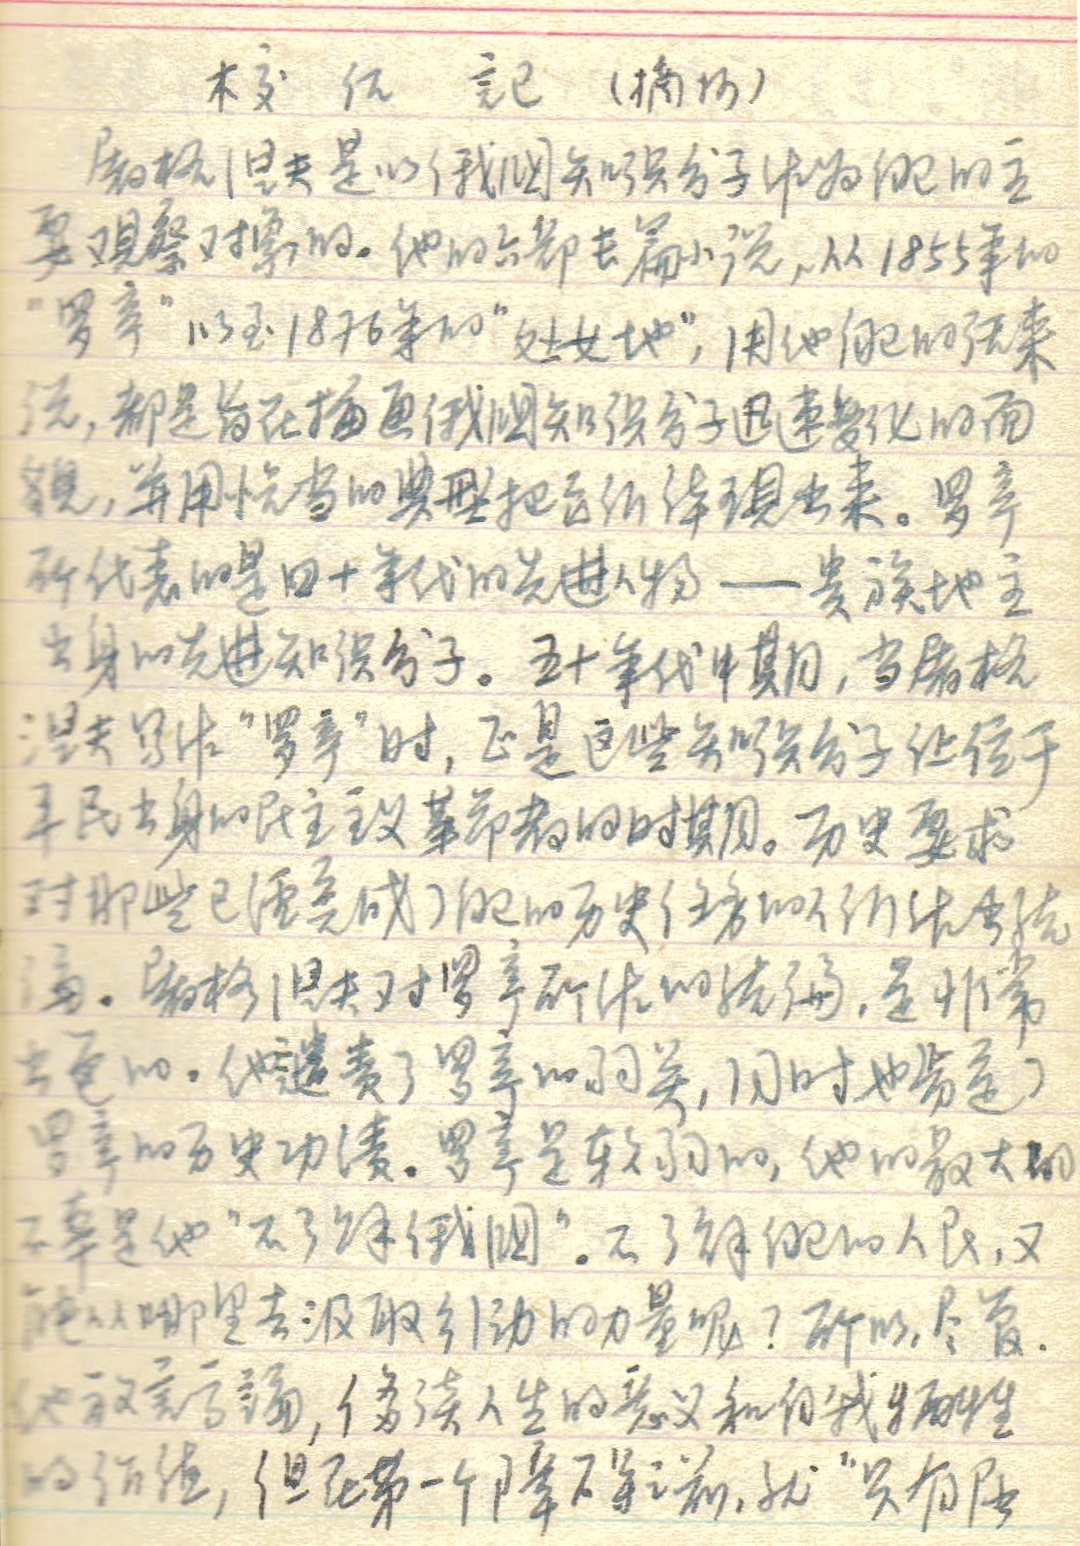 校后记(摘抄)
屠格涅夫是以俄国知识分子作为自己的主
要观察对象的。他的六部长篇小说,从1855年的
"罗亭"以至1876年的"处女地",用他自己的话来
说,都是旨在描画俄国知识分子迅速变化的面
貌,并用恰当的典型把它们体现出来。罗亭
所代表的是四十年代的先进人物——贵族地主
出身的先进知识分子。五十年代中期,当屠格
涅夫写作"罗亭"时,正是这些知识分子让位于
平民出身的民主主义革命者的时期。历史要求
对那些已经完成了自己的历史任务的人们作出结
论。屠格涅夫对罗亭所作的结论,是非常
出色的。他谴责了罗亭的弱点,同时也肯定了
罗亭的历史功绩。罗亭是软弱的,他的最大的
不幸是他"不了解俄国"。不了解自己的人民,又
能从哪里去汲取行动的力量呢?所以,尽管
他放言高论,侈谈人生的意义和自我牺牲
的价值,但在第一个障碍之前,就"只有屈